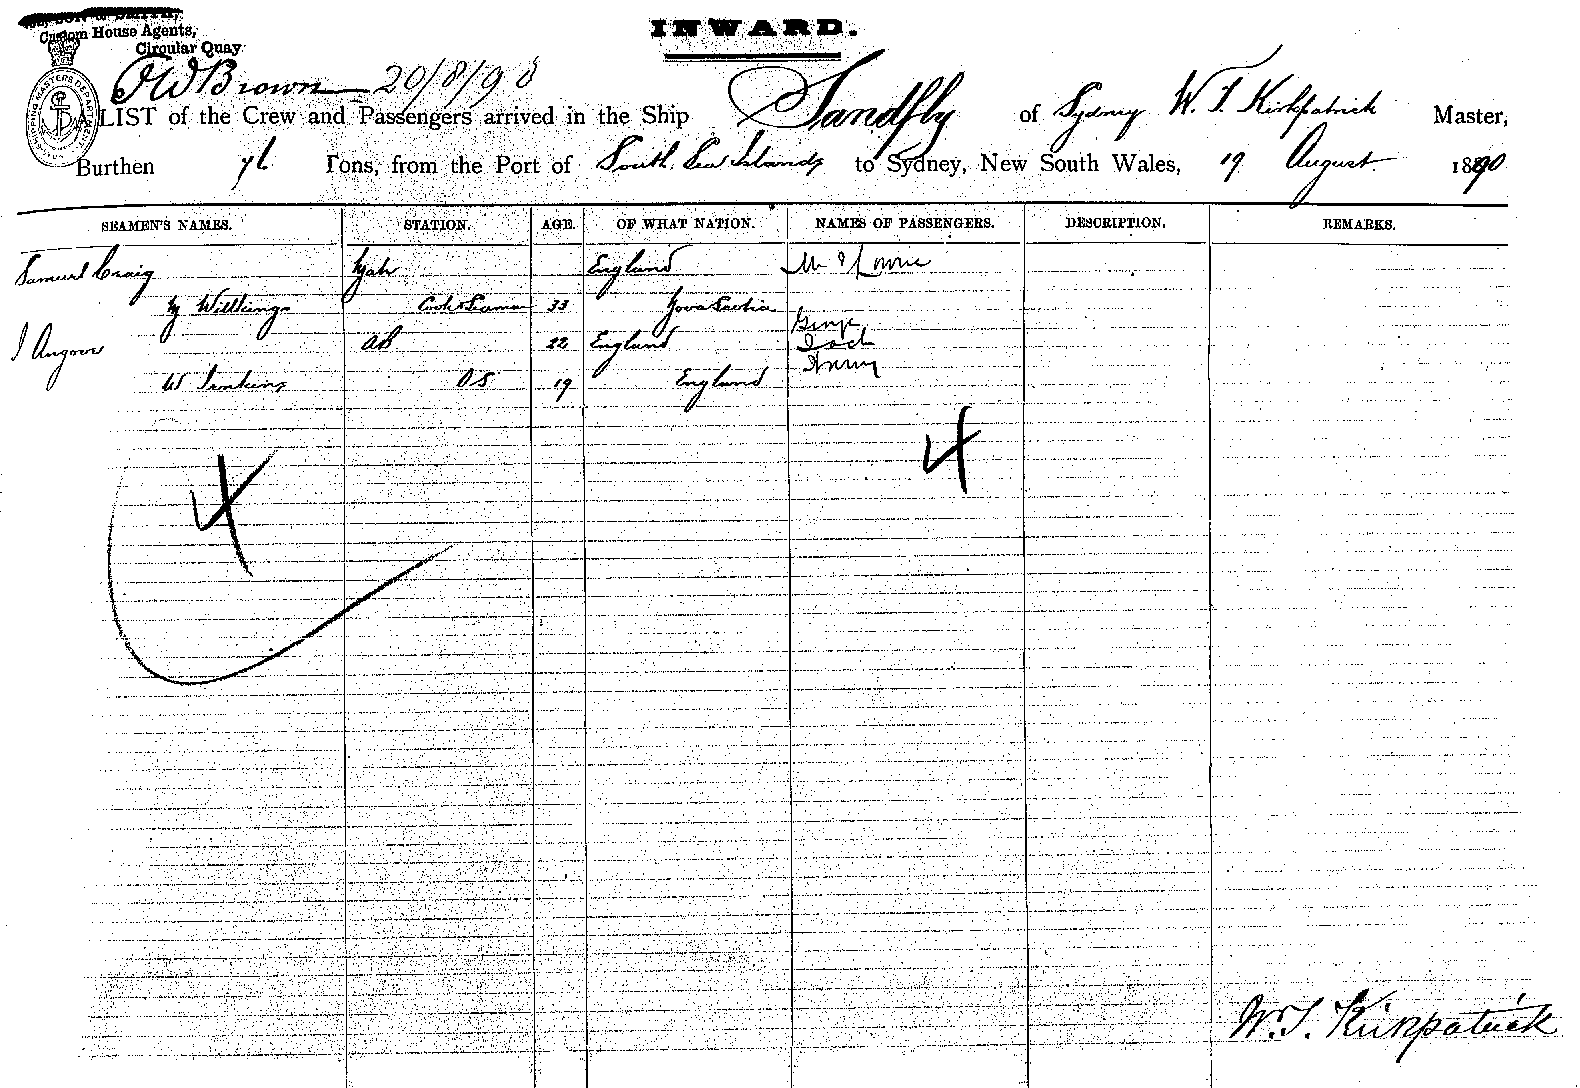 Custom House Agents,
Circular Quay
INWARD.
SHIPPING MASTERS DEPARTMENT
A LIST of the Crew and Passengers arrived in the Ship Sandfly of Sydney W. T. Kirkpatrick Master,
Burthen Tons, from the Port of South Sea Islands to Sydney, New South Wales, 19 August 1890
SEAMEN'S NAMES. STATION. AGE. OF WHAT NATION. NAMES OF PASSENGERS. DESCRIPTION. REMARKS.
Samuel Craig England
Cook & Seaman 33 Nova Scotia
AB 22 England
W Jenkins OS 19 England
4 4
W. T. Kirkpatrick